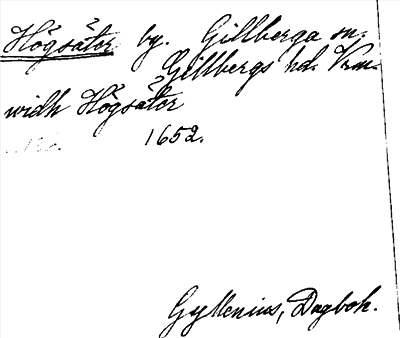 Högsäter by. Gillberga sn.
Gillbergs hd. Vrm.
widh Högsäter
1652.
Gyllenius, Dagbok.